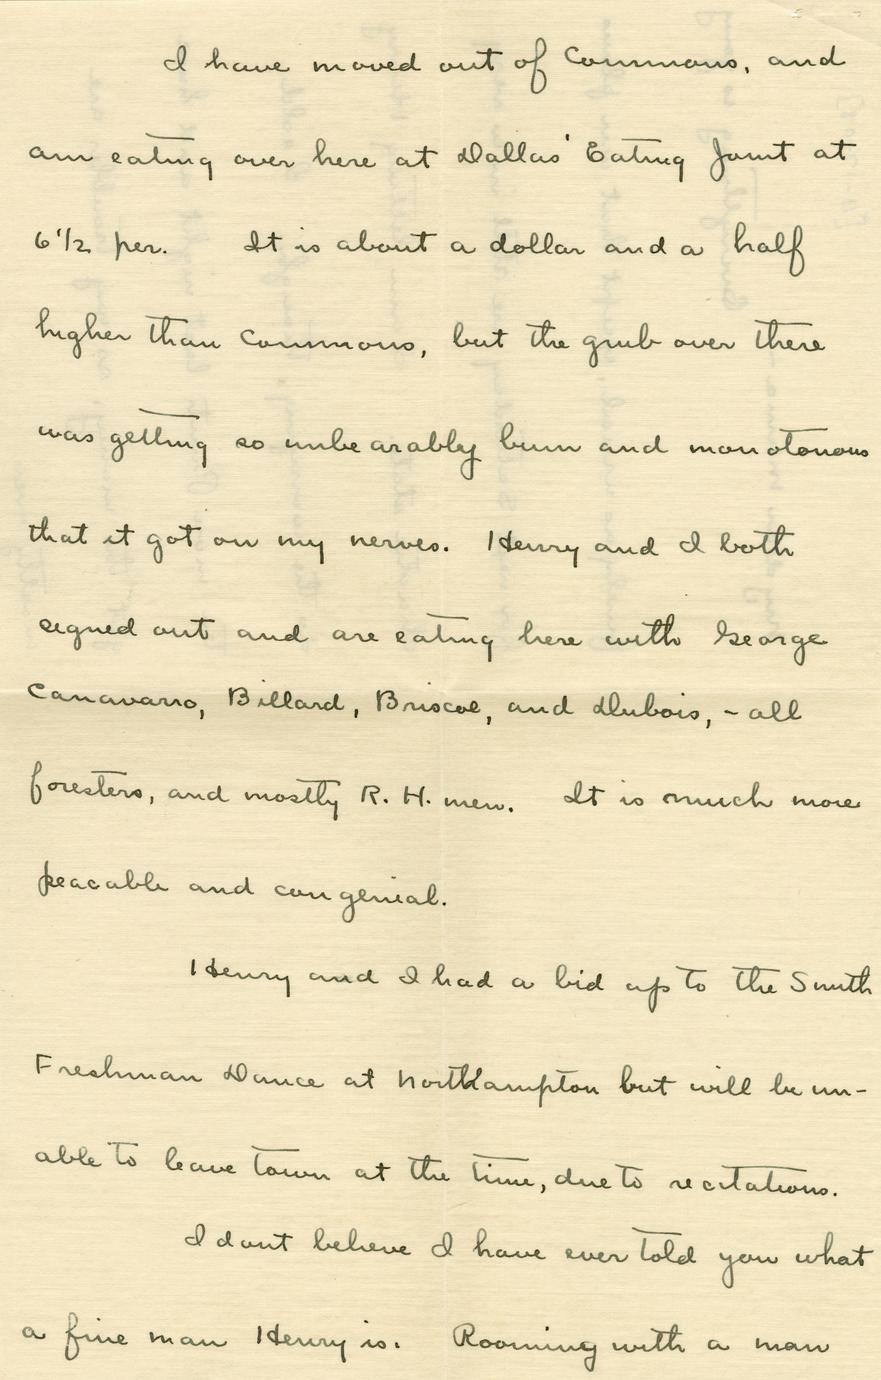 I have moved out of Commons, and
am eating over here at Dallas' Eating Joint at
6 1/2 per. It is about a dollar and a half
higher than Commons, but the grub over there
was getting so unbearably bum and monotonous
that it got on my nerves. Henry and I both
signed out and are eating here with George
Canavarro, Billard, Briscoe, and Dubois, - all
foresters, and mostly R. H. men. It is much more
peacable and congenial.
Henry and I had a bid up to the Smith
Freshman Dance at Northampton but will be un-
able to leave town at the time, due to recitations.
I dont believe I have ever told you what
a fine man Henry is. Rooming with a man